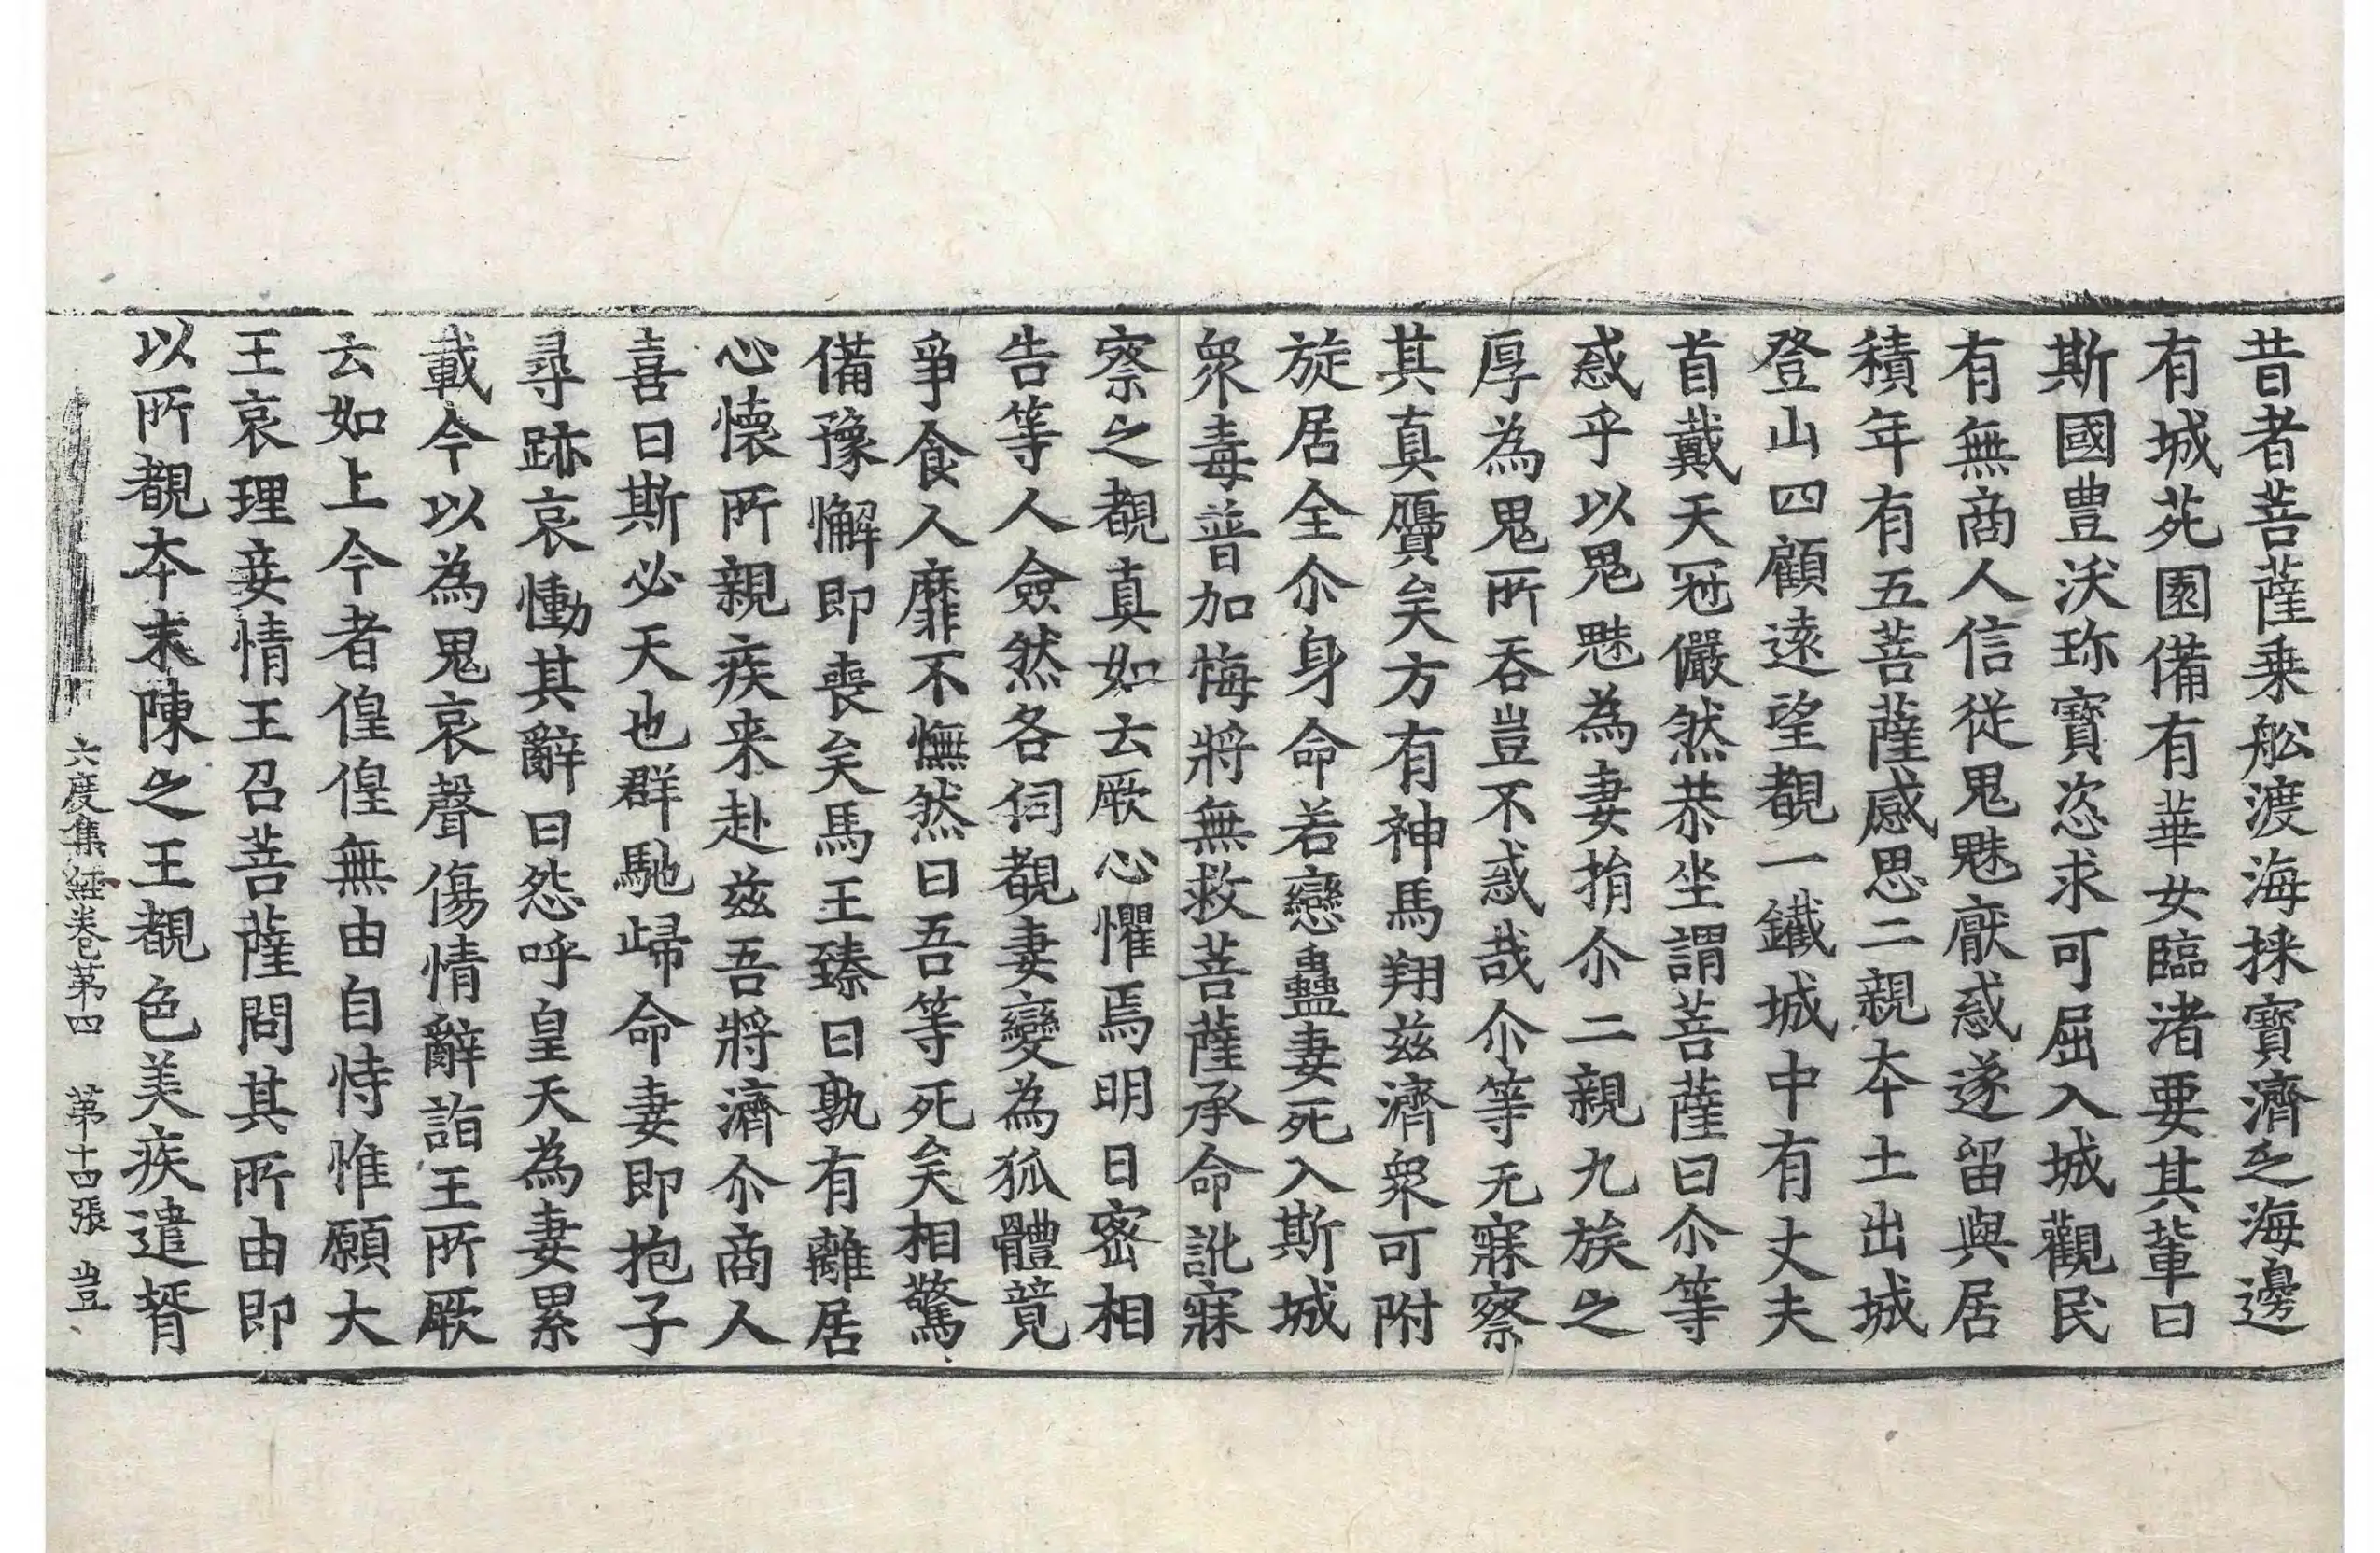 昔者菩薩乗舩渡海採寶濟之海邊
有城苑園備有華女臨渚要其輩曰
斯國豊沃珎寶恣求可屈入城觀民
有無商人信從鬼魅厭惑遂留與居
積年有五菩薩感思二親夲土出城
登山四顧遠望覩一鐵城中有丈夫
首戴天冠儼然恭坐謂菩薩曰尒等
惑乎以鬼魅為妻捐尒二親九族之
厚為鬼所吞豈不惑哉尒等无寐察
其真贗矣方有神馬翔兹濟衆可附
旋居全尒身命若戀蠱妻死入斯城
衆毒普加悔將無救菩薩承命訛寐
察之覩真如云厥心懼焉明日密相
告等人僉然各伺覩妻變為狐體竟
爭食人靡不憮然曰吾等死矣相驚
備豫懈即喪矣馬王臻曰孰有離居
心懷所親疾来赴兹吾將濟尒商人
喜曰斯必天也群馳歸命妻即抱子
尋跡哀慟其辭曰怨呼皇天為妻累
載今以為鬼哀聲傷情辭詣王所厥
云如上今者偟偟無由自恃惟願大
王哀理妾情王召菩薩問其所由即
以所覩夲末陳之王覩色美疾遣壻
六度集經卷第四　第十四張　豈